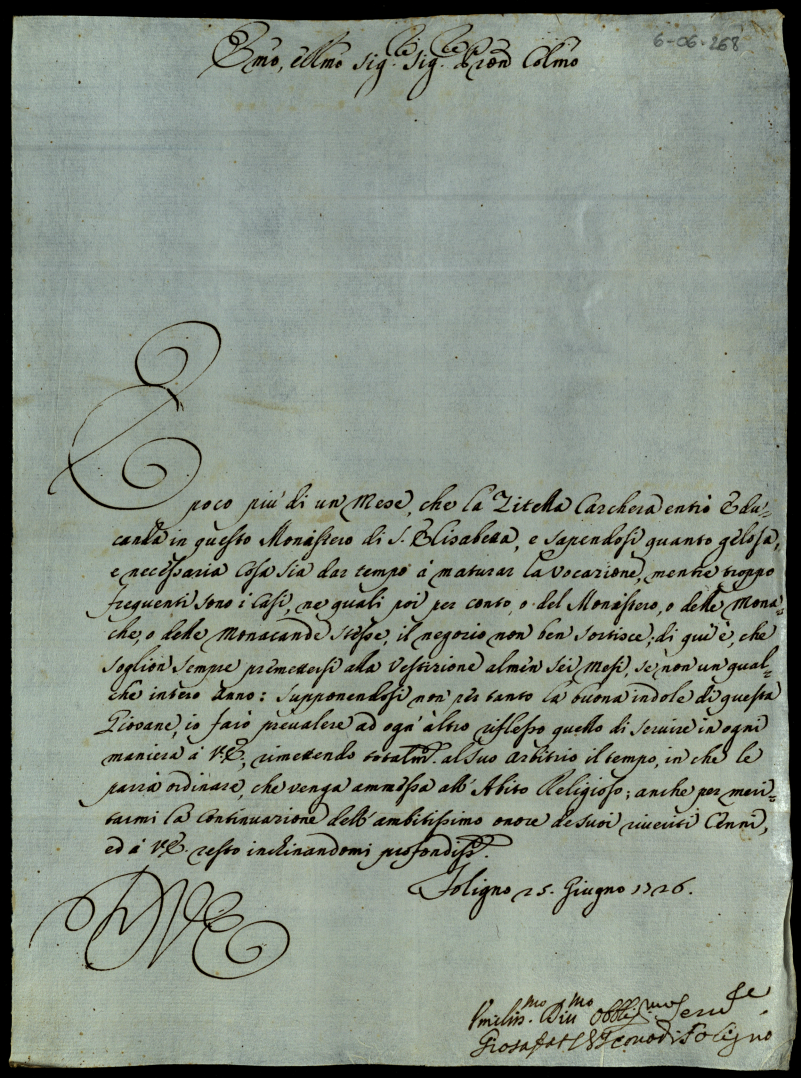 6-06-268
Emo, e Rmo Sig.re Sig.re Pron Colmo
E
poco più di un Mese, che la Zitella Carchera entrò Edu=
canda in questo Monastero di S. Elisabetta, e sapendosi quanto gelosa,
e necessaria cosa sia dar tempo à maturar la vocazione, mentre troppo
frequenti sono i casi, ne quali poi per conto, o del Monastero, o delle Mona=
che, o delle Monacande stesse, il negozio non ben sortisce; di qui è, che
soglion sempre premettersi alla Vestizione almen sei Mesi, se non un qual=
che intero Anno: Supponendosi non per tanto la buona indole di questa
Giovane, io farò prevalere ad ogn' altro riflesso quello di servire in ogni
maniera à V.E., rimettendo totalm.e al suo arbitrio il tempo, in che le
parrà ordinare, che venga ammessa all' Abito Religioso; anche per meri=
tarmi la continuazione dell' ambitissimo onore de suoi riveriti Cenni,
ed à V.E. resto inchinandomi profondiss.e
Foligno 25. Giugno 1726.
DVE
Umiliss.mo Div.mo Obblig.mo Serv.re
Giosafat Vescovo di Foligno